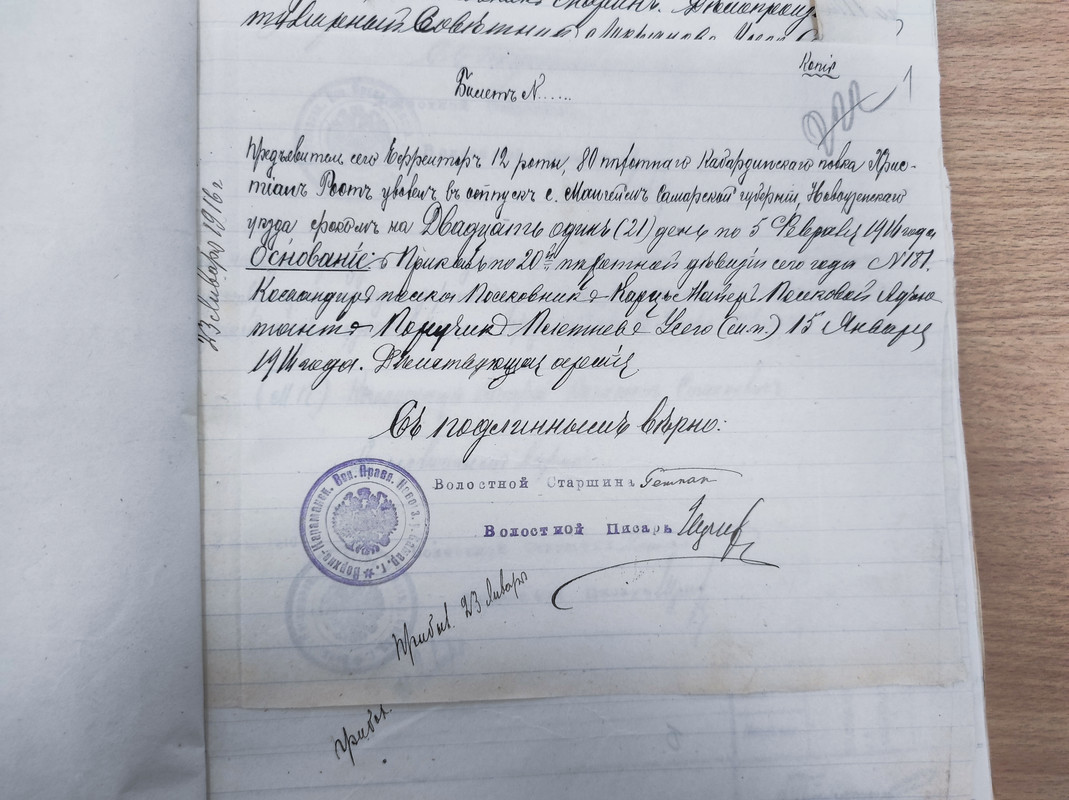 Совѣтникъ
Копія
Билетъ N.....
1
Предъявитель сего Ефрейторъ 12 роты, 80 пѣхотнаго Кабардинскаго полка Хрис-
тіанъ Ростъ уволенъ въ отпускъ с. Мангеймъ Самарской губерніи, Новоузенскаго
уѣзда срокомъ на Двадцать одинъ (21) день по 5 Февраля 1916 года
Основаніе: Приказъ по 20й пѣхотной дивизіи сего года N 181.
Командиръ полка Полковникъ Полковой Адъю-
тантъ Поручикъ (м.п.) 15 Января
1916 года. Дѣйствующая армія
Съ подлиннымъ вѣрно:
Волостной Старшина
Волостной Писарь
Верхне-Караманск. Вол. Правл. Новоуз. у. Самар. г.
23 Января 1916 г
Прибыл. 23 Января
Прибыл.